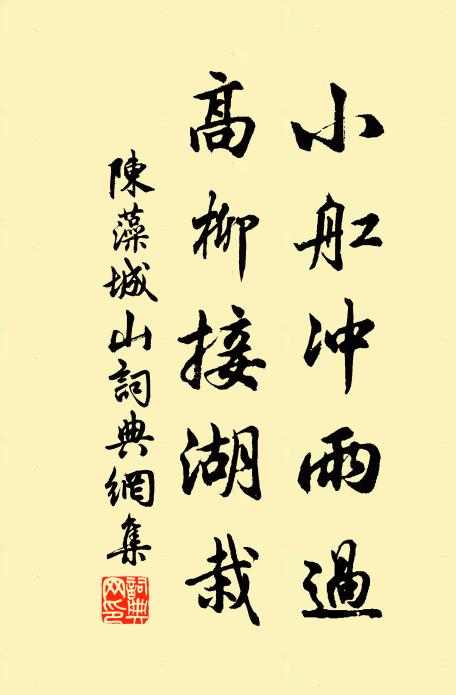 小舡冲雨過
高柳接湖栽
陳藻城山詞典網集
詞典网印